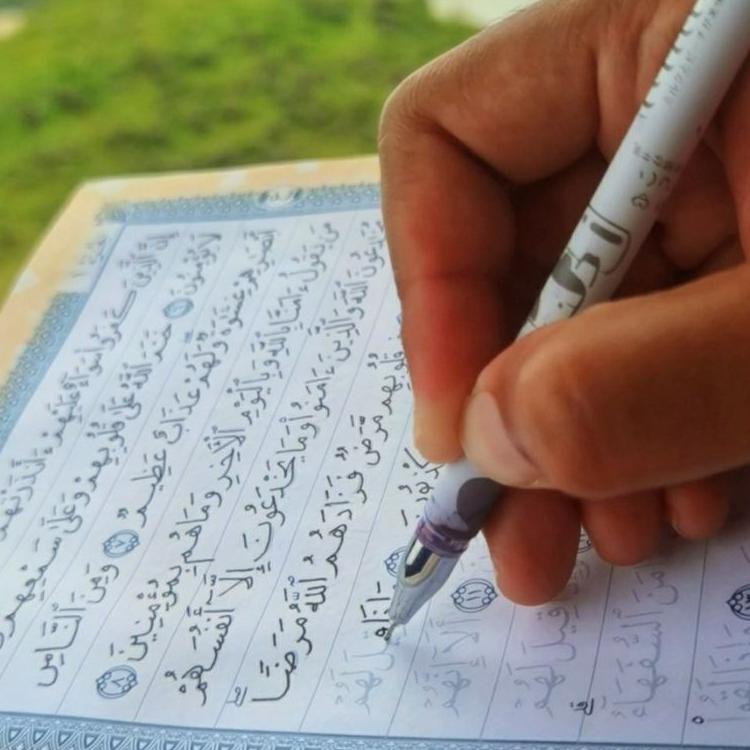 إِنَّ ٱلَّذِينَ كَفَرُوا۟ سَوَآءٌ عَلَيْهِمْ ءَأَنذَرْتَهُمْ
لَا يُؤْمِنُونَ ٦ خَتَمَ ٱللَّهُ عَلَىٰ قُلُوبِهِمْ وَعَلَىٰ سَمْعِهِمْ وَ
أَبْصَٰرِهِمْ غِشَٰوَةٌ وَلَهُمْ عَذَابٌ عَظِيمٌ ٧ وَمِنَ ٱلنَّاسِ
مَن يَقُولُ ءَامَنَّا بِٱللَّهِ وَبِٱلْيَوْمِ ٱلْءَاخِرِ وَمَا هُم بِمُؤْمِنِينَ ٨
يُخَٰدِعُونَ ٱللَّهَ وَٱلَّذِينَ ءَامَنُوا۟ وَمَا يَخْدَعُونَ إِلَّآ أَنفُسَهُمْ
قُلُوبِهِم مَّرَضٌ فَزَادَهُمُ ٱللَّهُ مَرَضًا ۖ
يَكْذِبُونَ وَإِذَا قِيلَ لَهُمْ
١١ أَلَآ إِنَّهُمْ
قِيلَ لَهُمْ
ٱلسُّفَهَآءُ ۗ